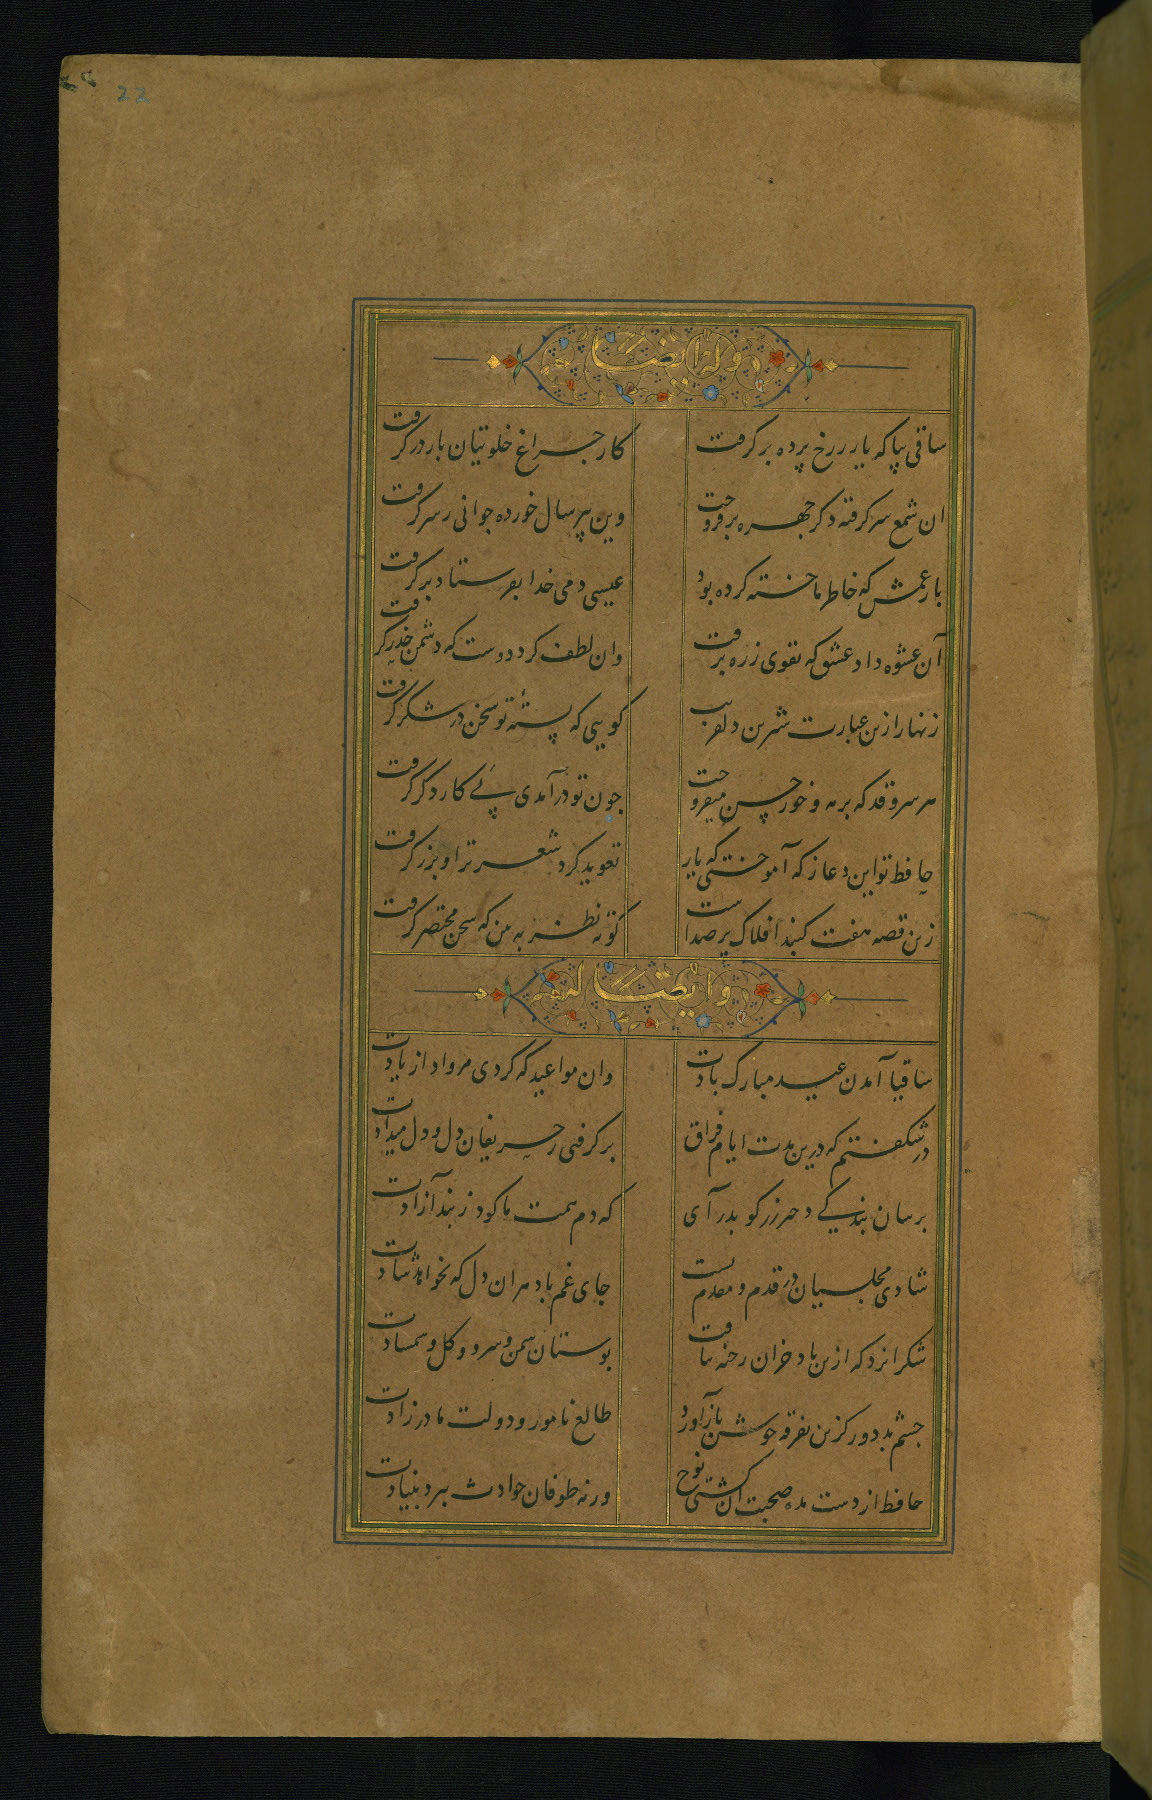 22
وله ایضا
ساقی بیا که یار ز رخ پرده برگرفت کار چراغ خلوتیان باز درگرفت
ان شمع سرگرفته دگر چهره برفروخت وین پیر سال خورده جوانی ز سر گرفت
بار غمش که خاطر ما خسته کرده بود عیسی دمی خدا بفرستاد برگرفت
آن عشوه داد عشق که تقوی ز ره برفت وان لطف کرد دوست که دشمن حذر گرفت
زنهار ازین عبارت شیرین دلفریب گویی که پستهٔ تو سخن در شکر گرفت
هر سرو قد که بر مه و خور حسن میفروخت چون تو درآمدی پی کار دگر گرفت
حافظ تو این دعا ز که آموختی که یار تعویذ کرد شعر ترا و بزر گرفت
زین قصه هفت گنبد افلاک پر صداست کوته نظر ببین که سخن مختصر گرفت
وله ایضا
ساقیا آمدن عید مبارک بادت وان مواعید که کردی مرواد از یادت
در شگفتم که درین مدت ایام فراق برگرفتی ز حریفان دل و دل میدادت
برسان بندگی دختر رز گو بدر آی که دم همت ما کرد ز بند آزادت
شادی مجلسیان در قدم و مقدم تست جای غم باد مر ان دل که نخواهد شادت
شکر ایزد که ازین باد خزان رخنه نیافت بوستان سمن و سرو و گل و شمشادت
چشم بد دور کزین تفرقه خوش باز آورد طالع نامور و دولت مادرزادت
حافظ از دست مده صحبت ان کشتی نوح ورنه طوفان حوادث ببرد بنیادت